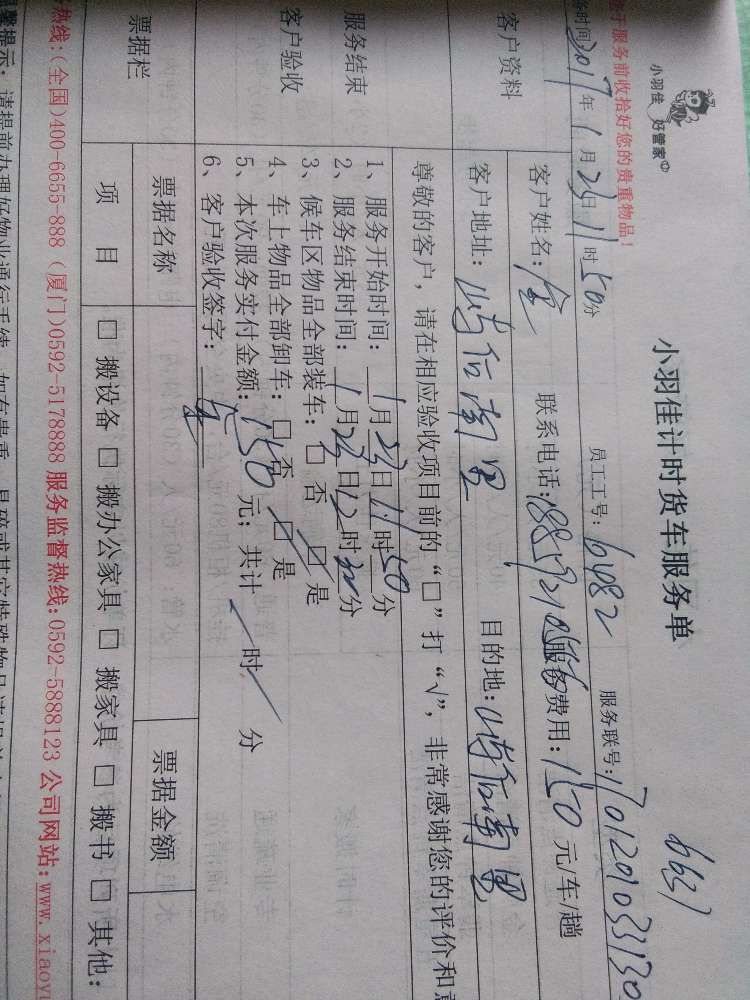 小羽佳 好管家
小羽佳计时货车服务单
6637
于服务前收拾好您的贵重物品!
时间2017年1月23日11时50分 员工工号:6482 服务联号:
客户资料
客户姓名:金 联系电话: 服务费用:150元/车/趟
客户地址: 后南里 目的地: 后南里
服务结束
客户验收
尊敬的客户,请在相应验收项目前的“□”打“√”,非常感谢您的评价和
1、服务开始时间:1月23日11时50分
2、服务结束时间:1月23日12时30分
3、候车区物品全部装车:□否 ☑是
4、车上物品全部卸车:□否 ☑是
5、本次服务实付金额:150元;共计 时 分
6、客户验收签字:
票据栏
票据名称 票据金额
项目 □搬设备 □搬办公家具 □搬家具 □搬书 □其他:
热线:(全国)400-6655-888 (厦门)0592-5178888 服务监督热线:0592-5888123 公司网站:www.xiaoy
提示:请提前办理好物业通行手续,如有贵重、易碎或其它特殊物品请提前